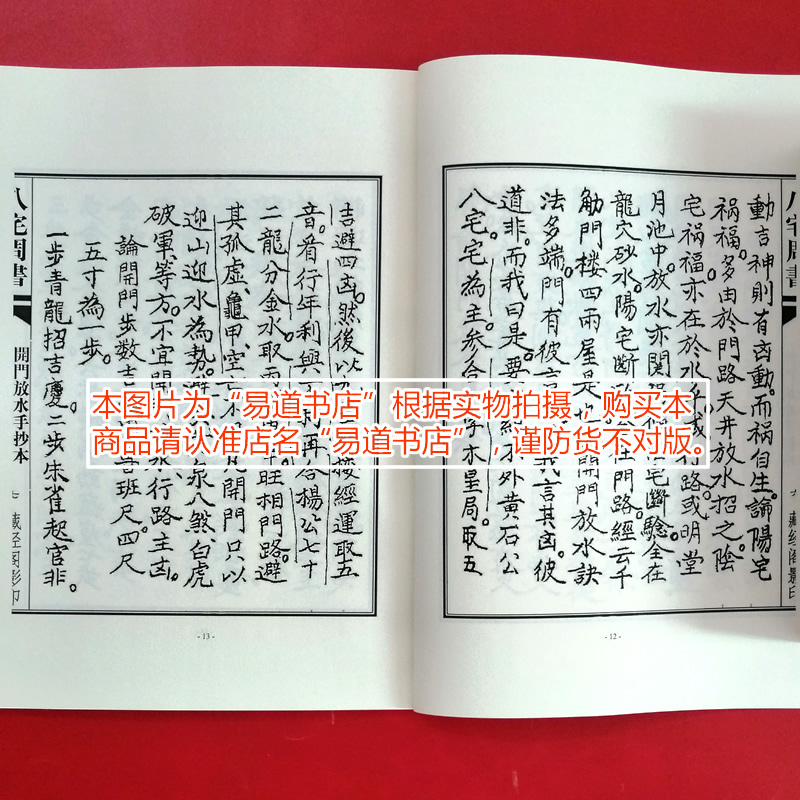 動吉神則有凶動。而禍自生。論陽宅
禍福。多由於門路天井放水招之。陰
宅禍福亦在於水
行路。或明堂
月池中。放水亦関
宅斷驗全在
龍穴砂水。陽宅斷
在門路。經云千
觔門楼四両屋是
開門放水訣
法多端。門有彼言
我言其凶。彼
道非。而我曰是。要
不外黄石公
八宅。宅為主。参合
木星局。取五
- 12 -
八宅周書
七 藏经阁影印
吉避四凶。然後以
接經運取五
音。看行年利與
再合楊公七十
二龍分金水取雨
旺相門路。避
其孤虛。龜甲。空亡
開門只以
迎山迎水為勢。避
泉八煞。白虎
破軍。等方。不宜開
水。行路主凶。
論開門步数吉
班尺。四尺
五寸為一步。
一步青龍招吉慶。二步朱雀起官非。
八宅周書
開門放水手抄本
七 藏经阁影印
- 13 -
本图片为“易道书店”根据实物拍摄，购买本
商品请认准店名“易道书店”，谨防货不对版。